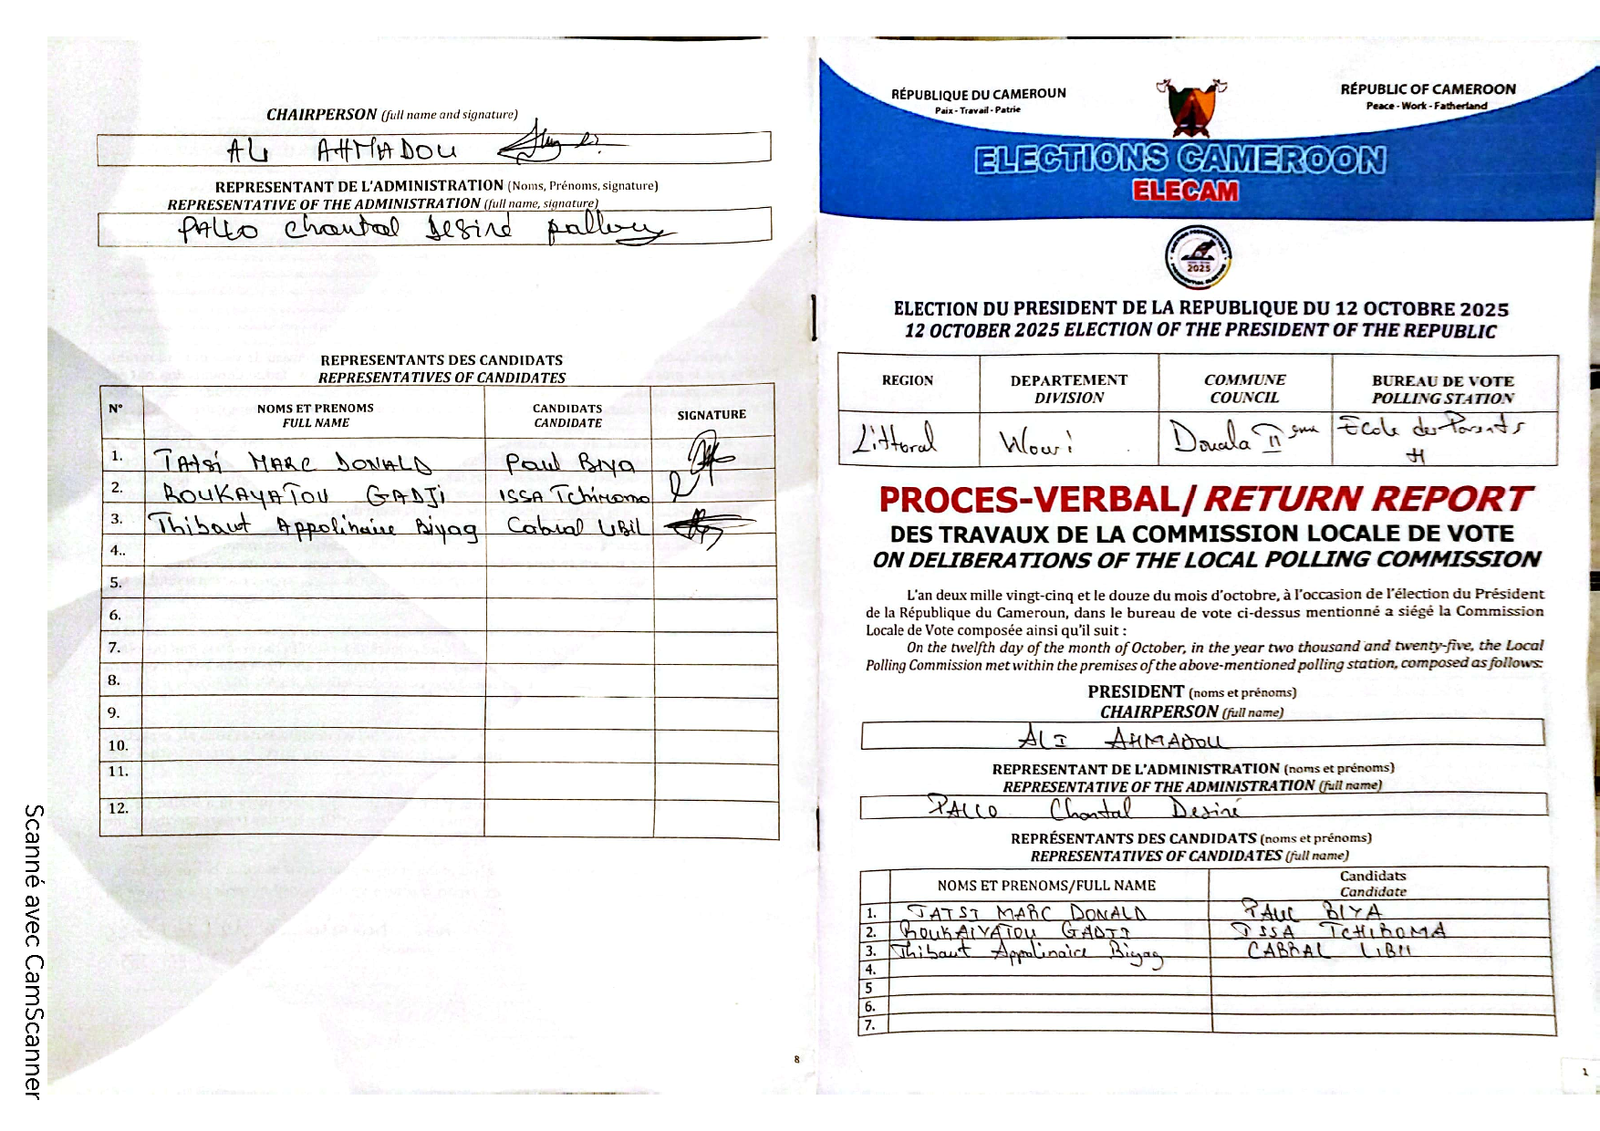 CHAIRPERSON (full name and signature)
ALI AHMADOU
REPRESENTANT DE L'ADMINISTRATION (Noms, Prénoms, signature)
REPRESENTATIVE OF THE ADMINISTRATION (full name, signature)
PALLO Chantal Desiré
REPRESENTANTS DES CANDIDATS
REPRESENTATIVES OF CANDIDATES
N° NOMS ET PRENOMS FULL NAME CANDIDATS CANDIDATE SIGNATURE
1. TATSI MARC DONALD Paul BIYA
2. ROUKAYATOU GADJI ISSA Tchiroma
3. Thibaut Appolinaire Biyag Cabral LIBII
4..
5.
6.
7.
8.
9.
10.
11.
12.
8
Scanné avec CamScanner
RÉPUBLIQUE DU CAMEROUN
Paix - Travail - Patrie
RÉPUBLIC OF CAMEROON
Peace - Work - Fatherland
ELECTIONS CAMEROON
ELECAM
2025
ELECTION DU PRESIDENT DE LA REPUBLIQUE DU 12 OCTOBRE 2025
12 OCTOBER 2025 ELECTION OF THE PRESIDENT OF THE REPUBLIC
REGION DEPARTEMENT DIVISION COMMUNE COUNCIL BUREAU DE VOTE POLLING STATION
Littoral Wouri Douala II ème Ecole des Parents H
PROCES-VERBAL/ RETURN REPORT
DES TRAVAUX DE LA COMMISSION LOCALE DE VOTE
ON DELIBERATIONS OF THE LOCAL POLLING COMMISSION
L'an deux mille vingt-cinq et le douze du mois d'octobre, à l'occasion de l'élection du Président
de la République du Cameroun, dans le bureau de vote ci-dessus mentionné a siégé la Commission
Locale de Vote composée ainsi qu'il suit :
On the twelfth day of the month of October, in the year two thousand and twenty-five, the Local
Polling Commission met within the premises of the above-mentioned polling station, composed as follows:
PRESIDENT (noms et prénoms)
CHAIRPERSON (full name)
ALI AHMADOU
REPRESENTANT DE L'ADMINISTRATION (noms et prénoms)
REPRESENTATIVE OF THE ADMINISTRATION (full name)
PALLO Chantal Desiré
REPRÉSENTANTS DES CANDIDATS (noms et prénoms)
REPRESENTATIVES OF CANDIDATES (full name)
NOMS ET PRENOMS/FULL NAME Candidats Candidate
1. TATSI MARC DONALD PAUL BIYA
2. ROUKAIYATOU GADJI ISSA TCHIROMA
3. Thibaut Appolinaire Biyag CABRAL LIBII
4.
5
6.
7.
1